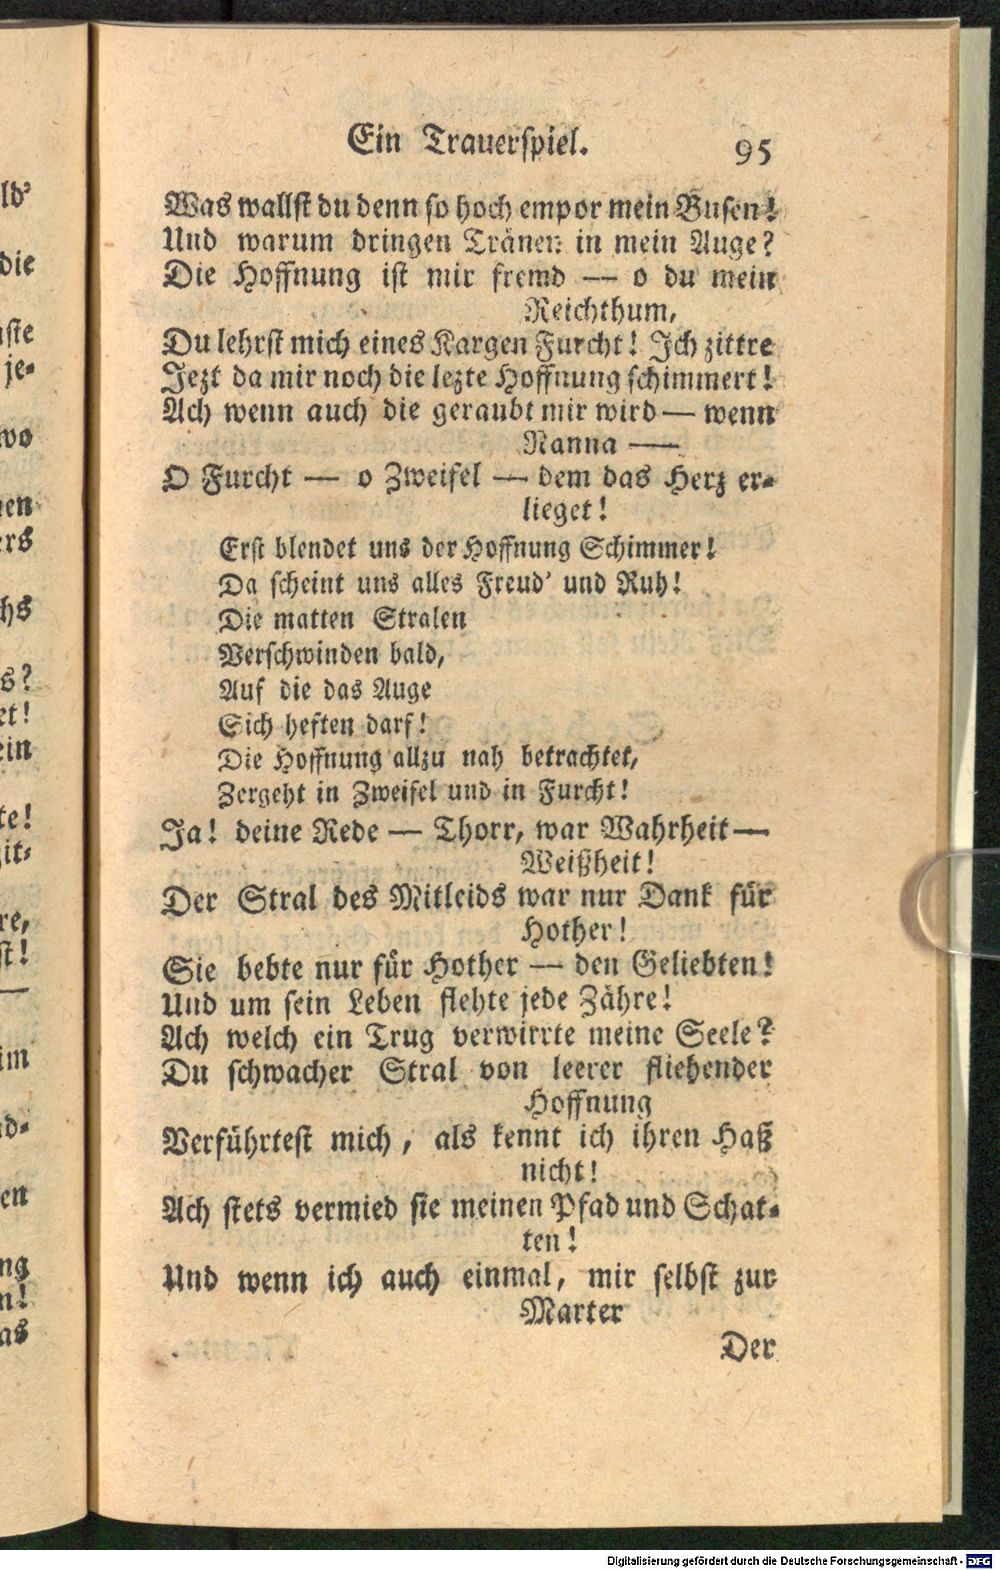 Ein Trauerspiel. 95
Was wallst du denn so hoch empor mein Busen!
Und warum dringen Tränen in mein Auge?
Die Hoffnung ist mir fremd — o du mein
Reichthum,
Du lehrst mich eines Kargen Furcht! Ich zittre
Jezt da mir noch die lezte Hoffnung schimmert!
Ach wenn auch die geraubt mir wird — wenn
Nanna —
O Furcht — o Zweifel — dem das Herz er-
lieget!
Erst blendet uns der Hoffnung Schimmer!
Da scheint uns alles Freud' und Ruh!
Die matten Stralen
Verschwinden bald,
Auf die das Auge
Sich heften darf!
Die Hoffnung allzu nah betrachtet,
Zergeht in Zweifel und in Furcht!
Ja! deine Rede — Thorr, war Wahrheit —
Weißheit!
Der Stral des Mitleids war nur Dank für
Hother!
Sie bebte nur für Hother — den Geliebten!
Und um sein Leben flehte jede Zähre!
Ach welch ein Trug verwirrte meine Seele?
Du schwacher Stral von leerer fliehender
Hoffnung
Verführtest mich, als kennt ich ihren Haß
nicht!
Ach stets vermied sie meinen Pfad und Schat-
ten!
Und wenn ich auch einmal, mir selbst zur
Marter
Der
ld'
die
je-
wo
s?
et!
ein
te!
re,
st!
im
en
ng
n!
as
Digitalisierung gefördert durch die Deutsche Forschungsgemeinschaft - DFG